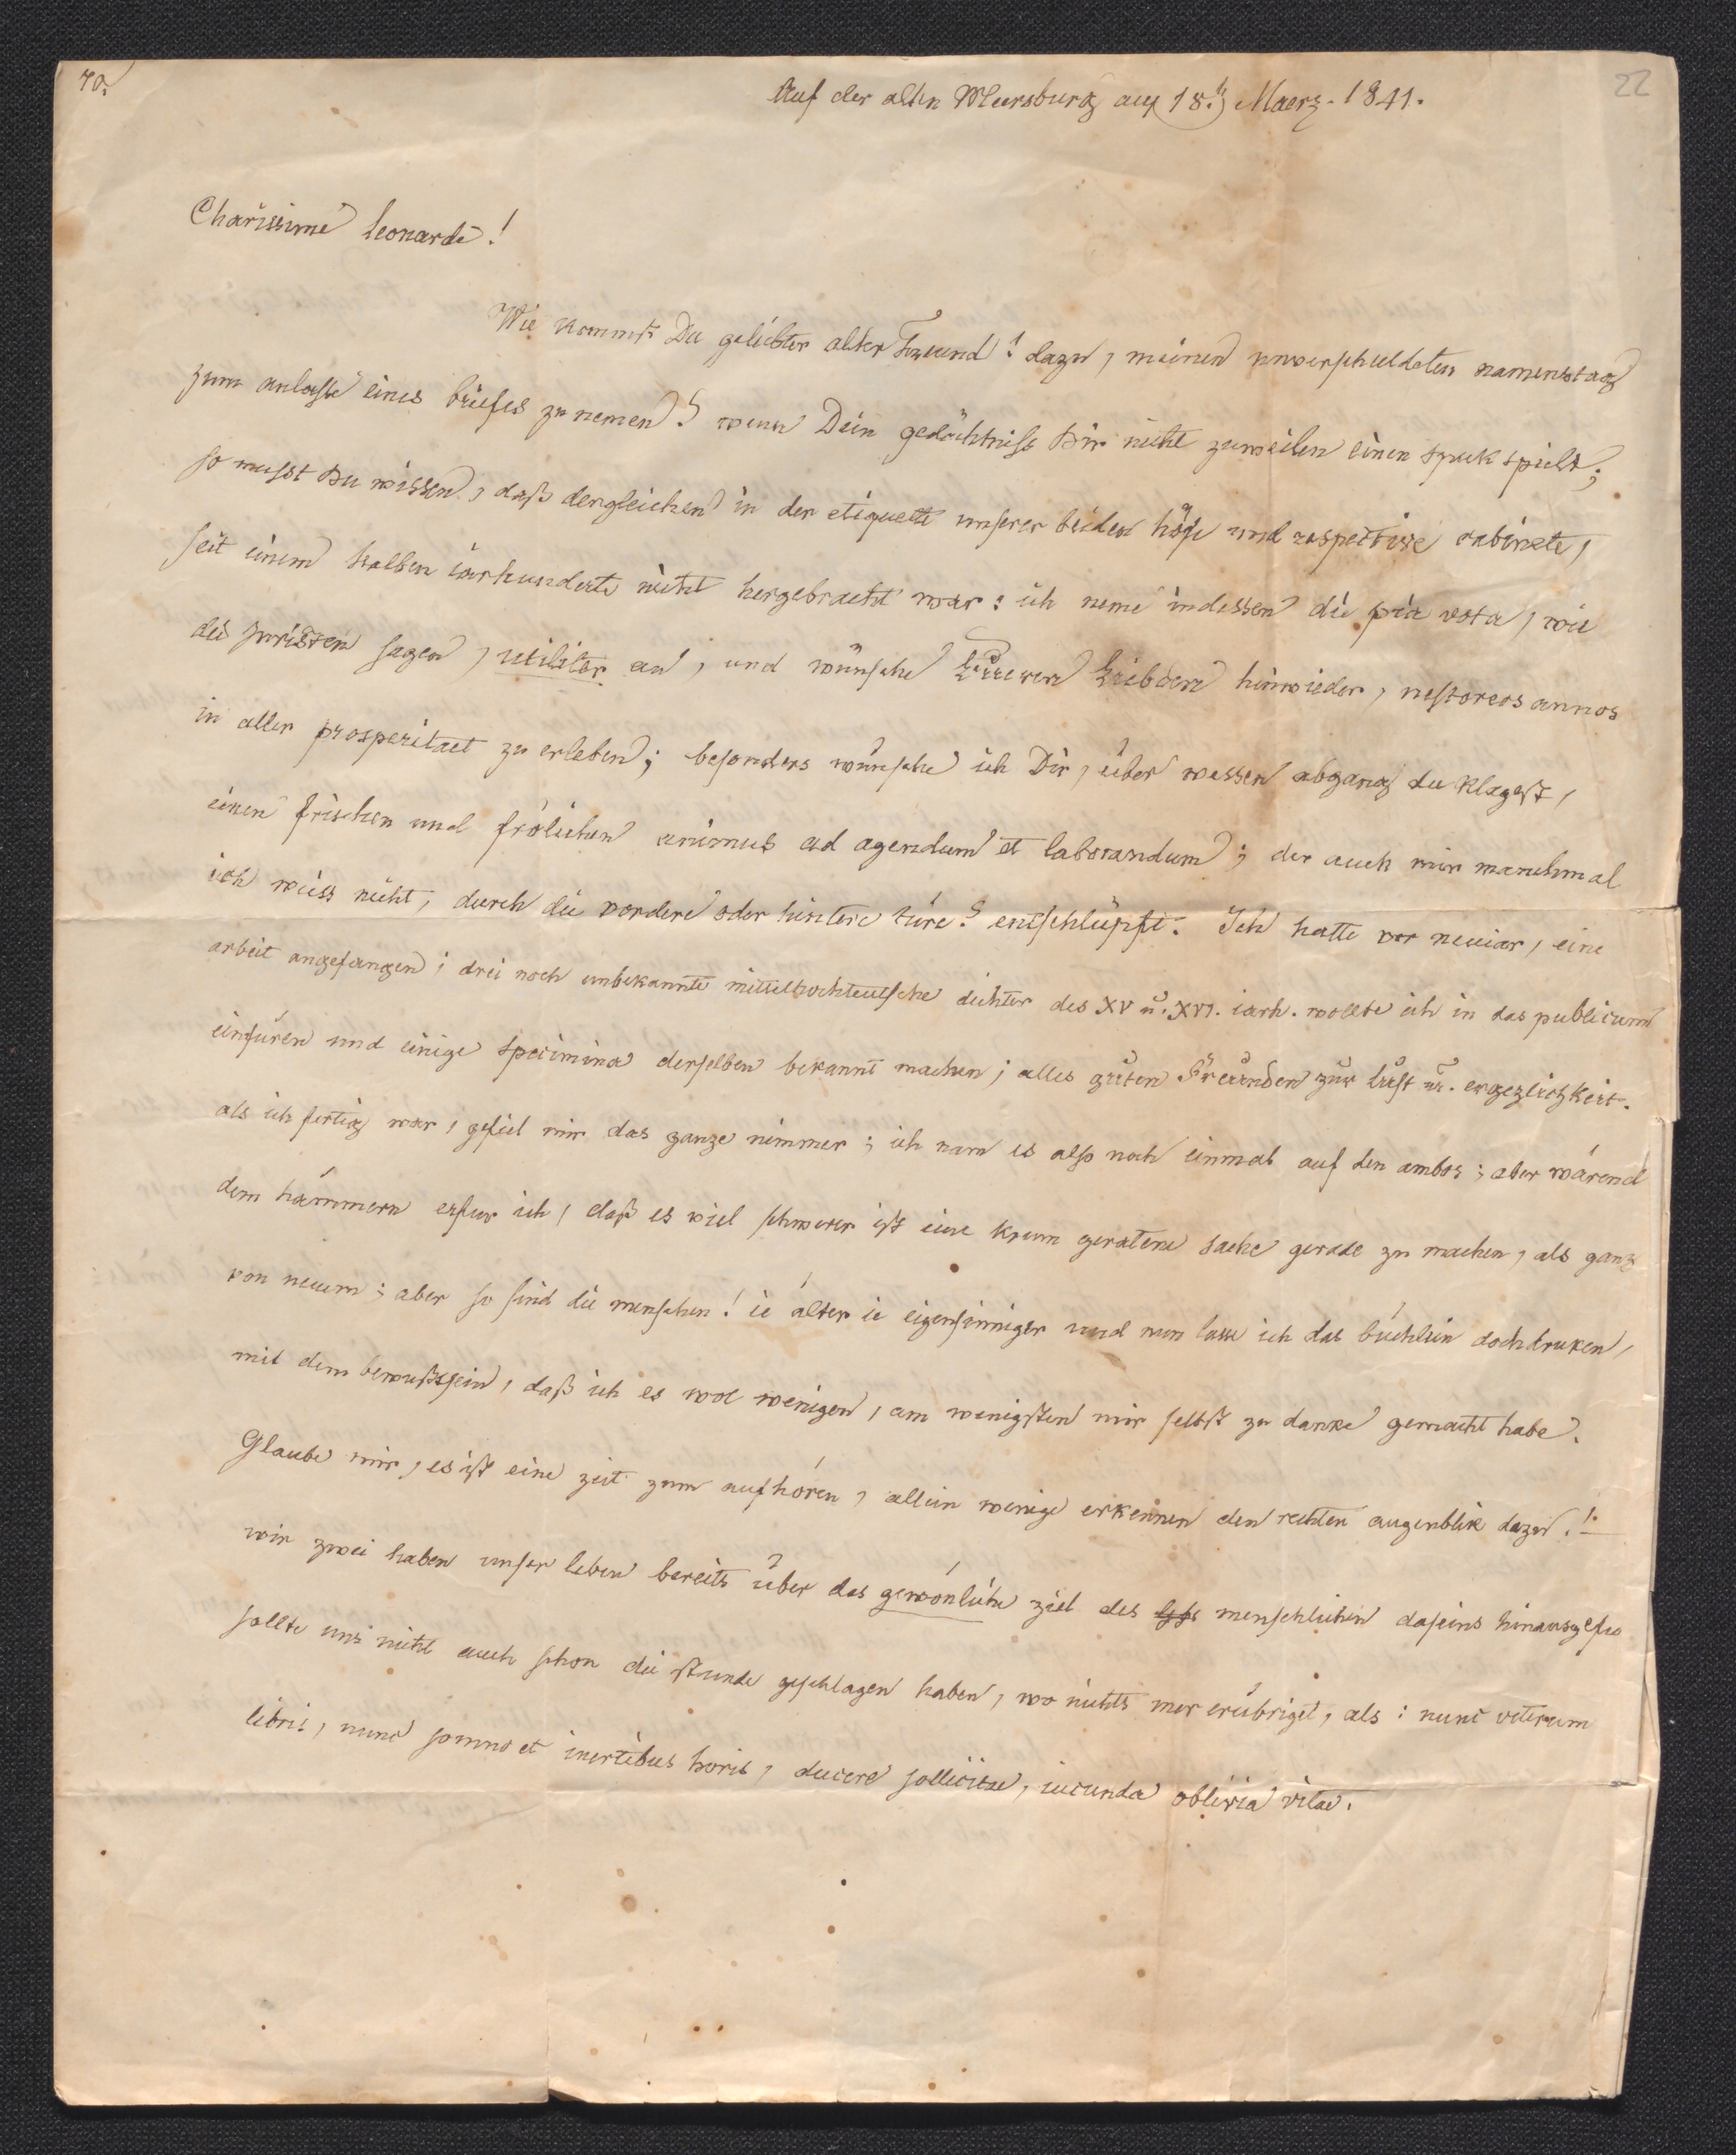 70.
22
Auf der alten Meersburg am 18.t Maerz. 1841.
Charissime Leonarde!
Wie kommst Du geliebter alter Freund! dazu, meinen unverschuldeten namenstag
zum anlasse eines briefes zu nemen? wenn Dein gedächtniss Dir nicht zuweilen einen spuk spielt;
so musst Du wissen, daß dergleichen in der etiquette unserer beiden höfe und respective cabinete,
seit einem halben iarhunderte nicht hergebracht war: ich neme indessen die pia vota, wie
die juristen sagen, utiliter an, und wünsche Liebden hinwieder, nestoreos annos
in aller prosperitaet zu erleben; besonders wünsche ich Dir, über wessen abgang du klagest,
einen frischen und frölichen animus ad agendum et laborandum; der auch mir manchmal
ich weiss nicht, durch die vordere oder hintere türe? entschlüpft. Ich hatte vor neuiar, eine
arbeit angefangen; drei noch unbekannte mittelhochteutsche dichter des XV u. XVI. iarh. wollte ich in das publicum
einfüren und einige specimina derselben bekannt machen; alles guten Freunden zur lust u. ergezlichkeit.
als ich fertig war, gefiel mir das ganze nimmer; ich nam es also noch einmal auf den ambos; aber wärend
dem hämmern erfur ich, daß es viel schwerer ist eine krum geratene sache gerade zu machen, als ganz
von neuem; aber so sind die menschen! ie älter ie eigensinniger und nun lasse ich das büchlein doch druken,
mit dem bewußtsein, daß ich es wol wenigen, am wenigsten mir selbst zu danke gemacht habe.
Glaube mir, es ist eine zeit zum aufhören, allein wenige erkennen den rechten augenblik dazu.!-
wir zwei haben unser leben bereits über das gewönliche ziel des menschlichen daseins hinaus
sollte uns nicht auch schon die stunde geschlagen haben, wo nichts mer erübriget, als: nunc veterum
libris, nunc somno et inertibus horis, ducere sollicitae, iucunda oblivia vitae.